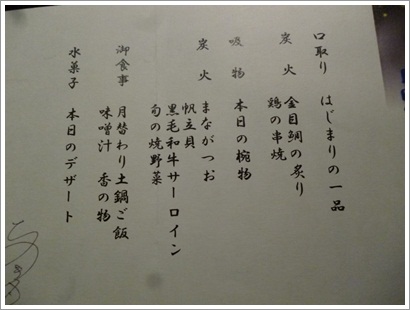 口取り　はじまりの一品
炭火　金目鯛の炙り
鶏の串焼
吸物　本日の椀物
炭火　まながつお
帆立貝
黒毛和牛サーロイン
旬の焼野菜
御食事　月替わり土鍋ご飯
味噌汁　香の物
水菓子　本日のデザート